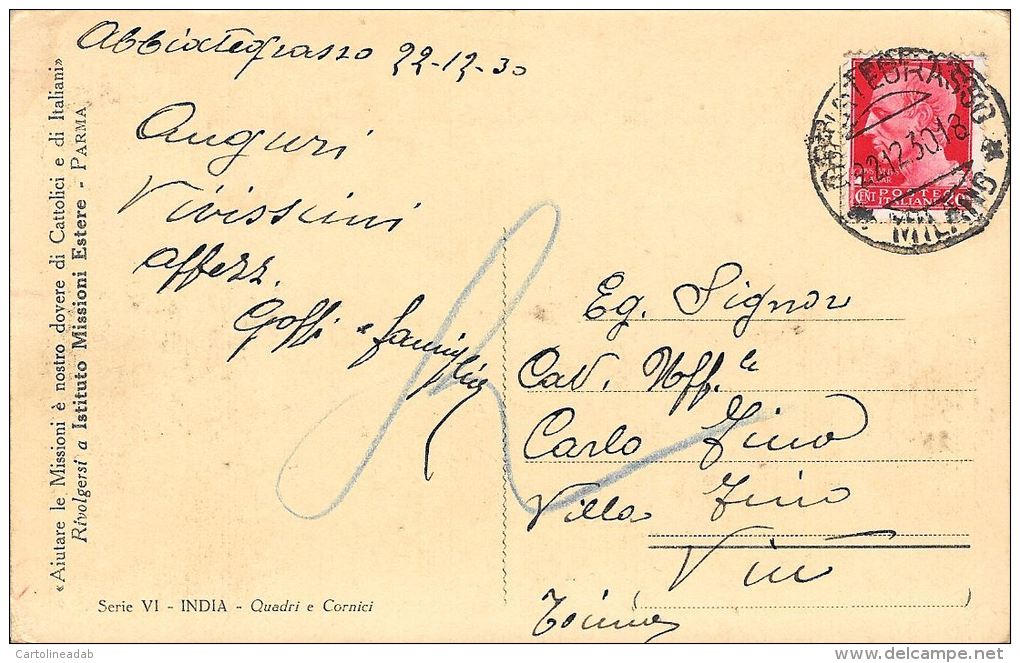 Abbiategrasso 22-12-30
Auguri
Vivissimi
affezz.
Goffi e famiglia
Eg. Signor
Cav. Uff. le
Carlo Fino
Villa Fino
Viù
Torino
«Aiutare le Missioni è nostro dovere di Cattolici e di Italiani»
Rivolgersi a Istituto Missioni Estere - PARMA
Serie VI - INDIA - Quadri e Cornici
ABBIATEGRASSO
22.12.30.18
* MILANO *
POSTE
ITALIANE
CENT
©Cartolineadab
delcampe.net